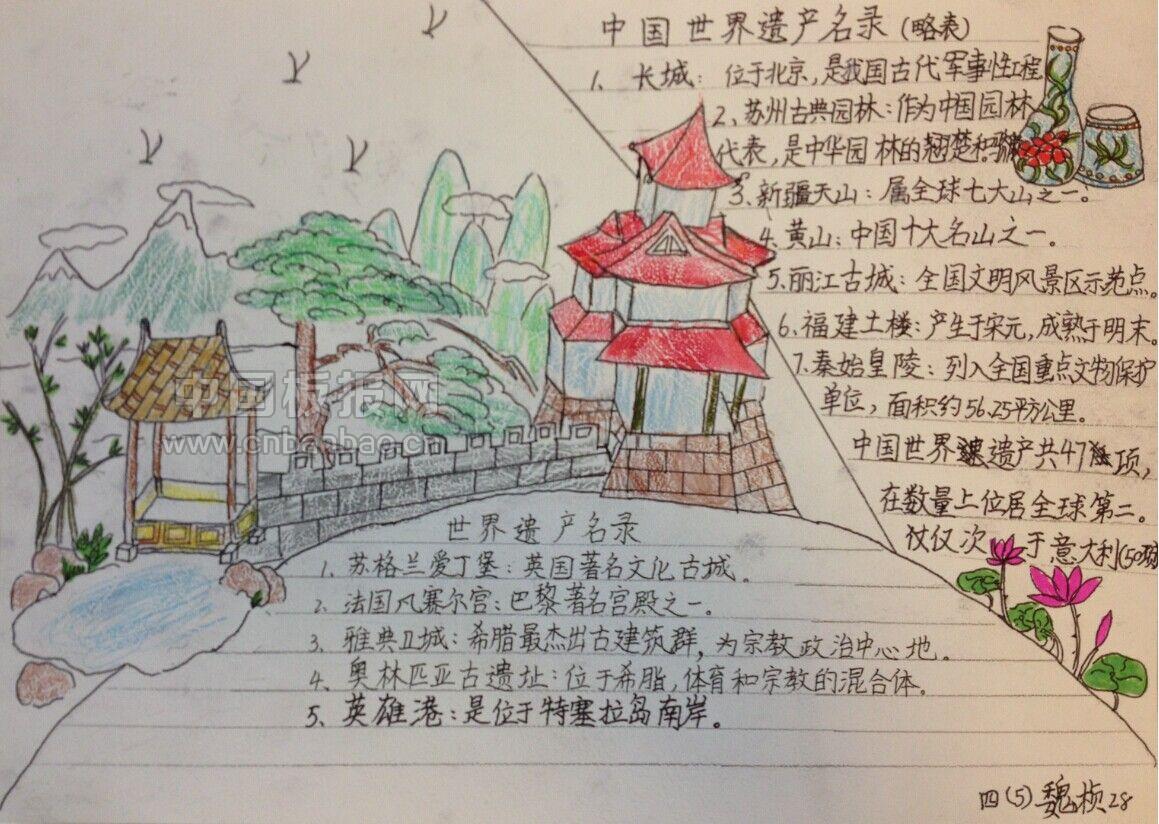 中国世界遗产名录(略表)
1、长城：位于北京，是我国古代军事性工程
2、苏州古典园林：作为中国园林
代表，是中华园林的翘楚和
3、新疆天山：属全球七大山之一。
4、黄山：中国十大名山之一。
5、丽江古城：全国文明风景区示范点。
6、福建土楼：产生于宋元，成熟于明末。
7、秦始皇陵：列入全国重点文物保护
单位，面积约56.25平方公里。
中国世界遗产共47项，
在数量上位居全球第二。
仅仅次于意大利(50项
世界遗产名录
1、苏格兰爱丁堡：英国著名文化古城。
2、法国凡赛尔宫：巴黎著名宫殿之一。
3、雅典卫城：希腊最杰出古建筑群，为宗教政治中心地。
4、奥林匹亚古遗址：位于希脂，体育和宗教的混合体。
5、英雄港：是位于特塞拉岛南岸。
四(5)魏桢28
中国板报网
www.cnbanbao.cn